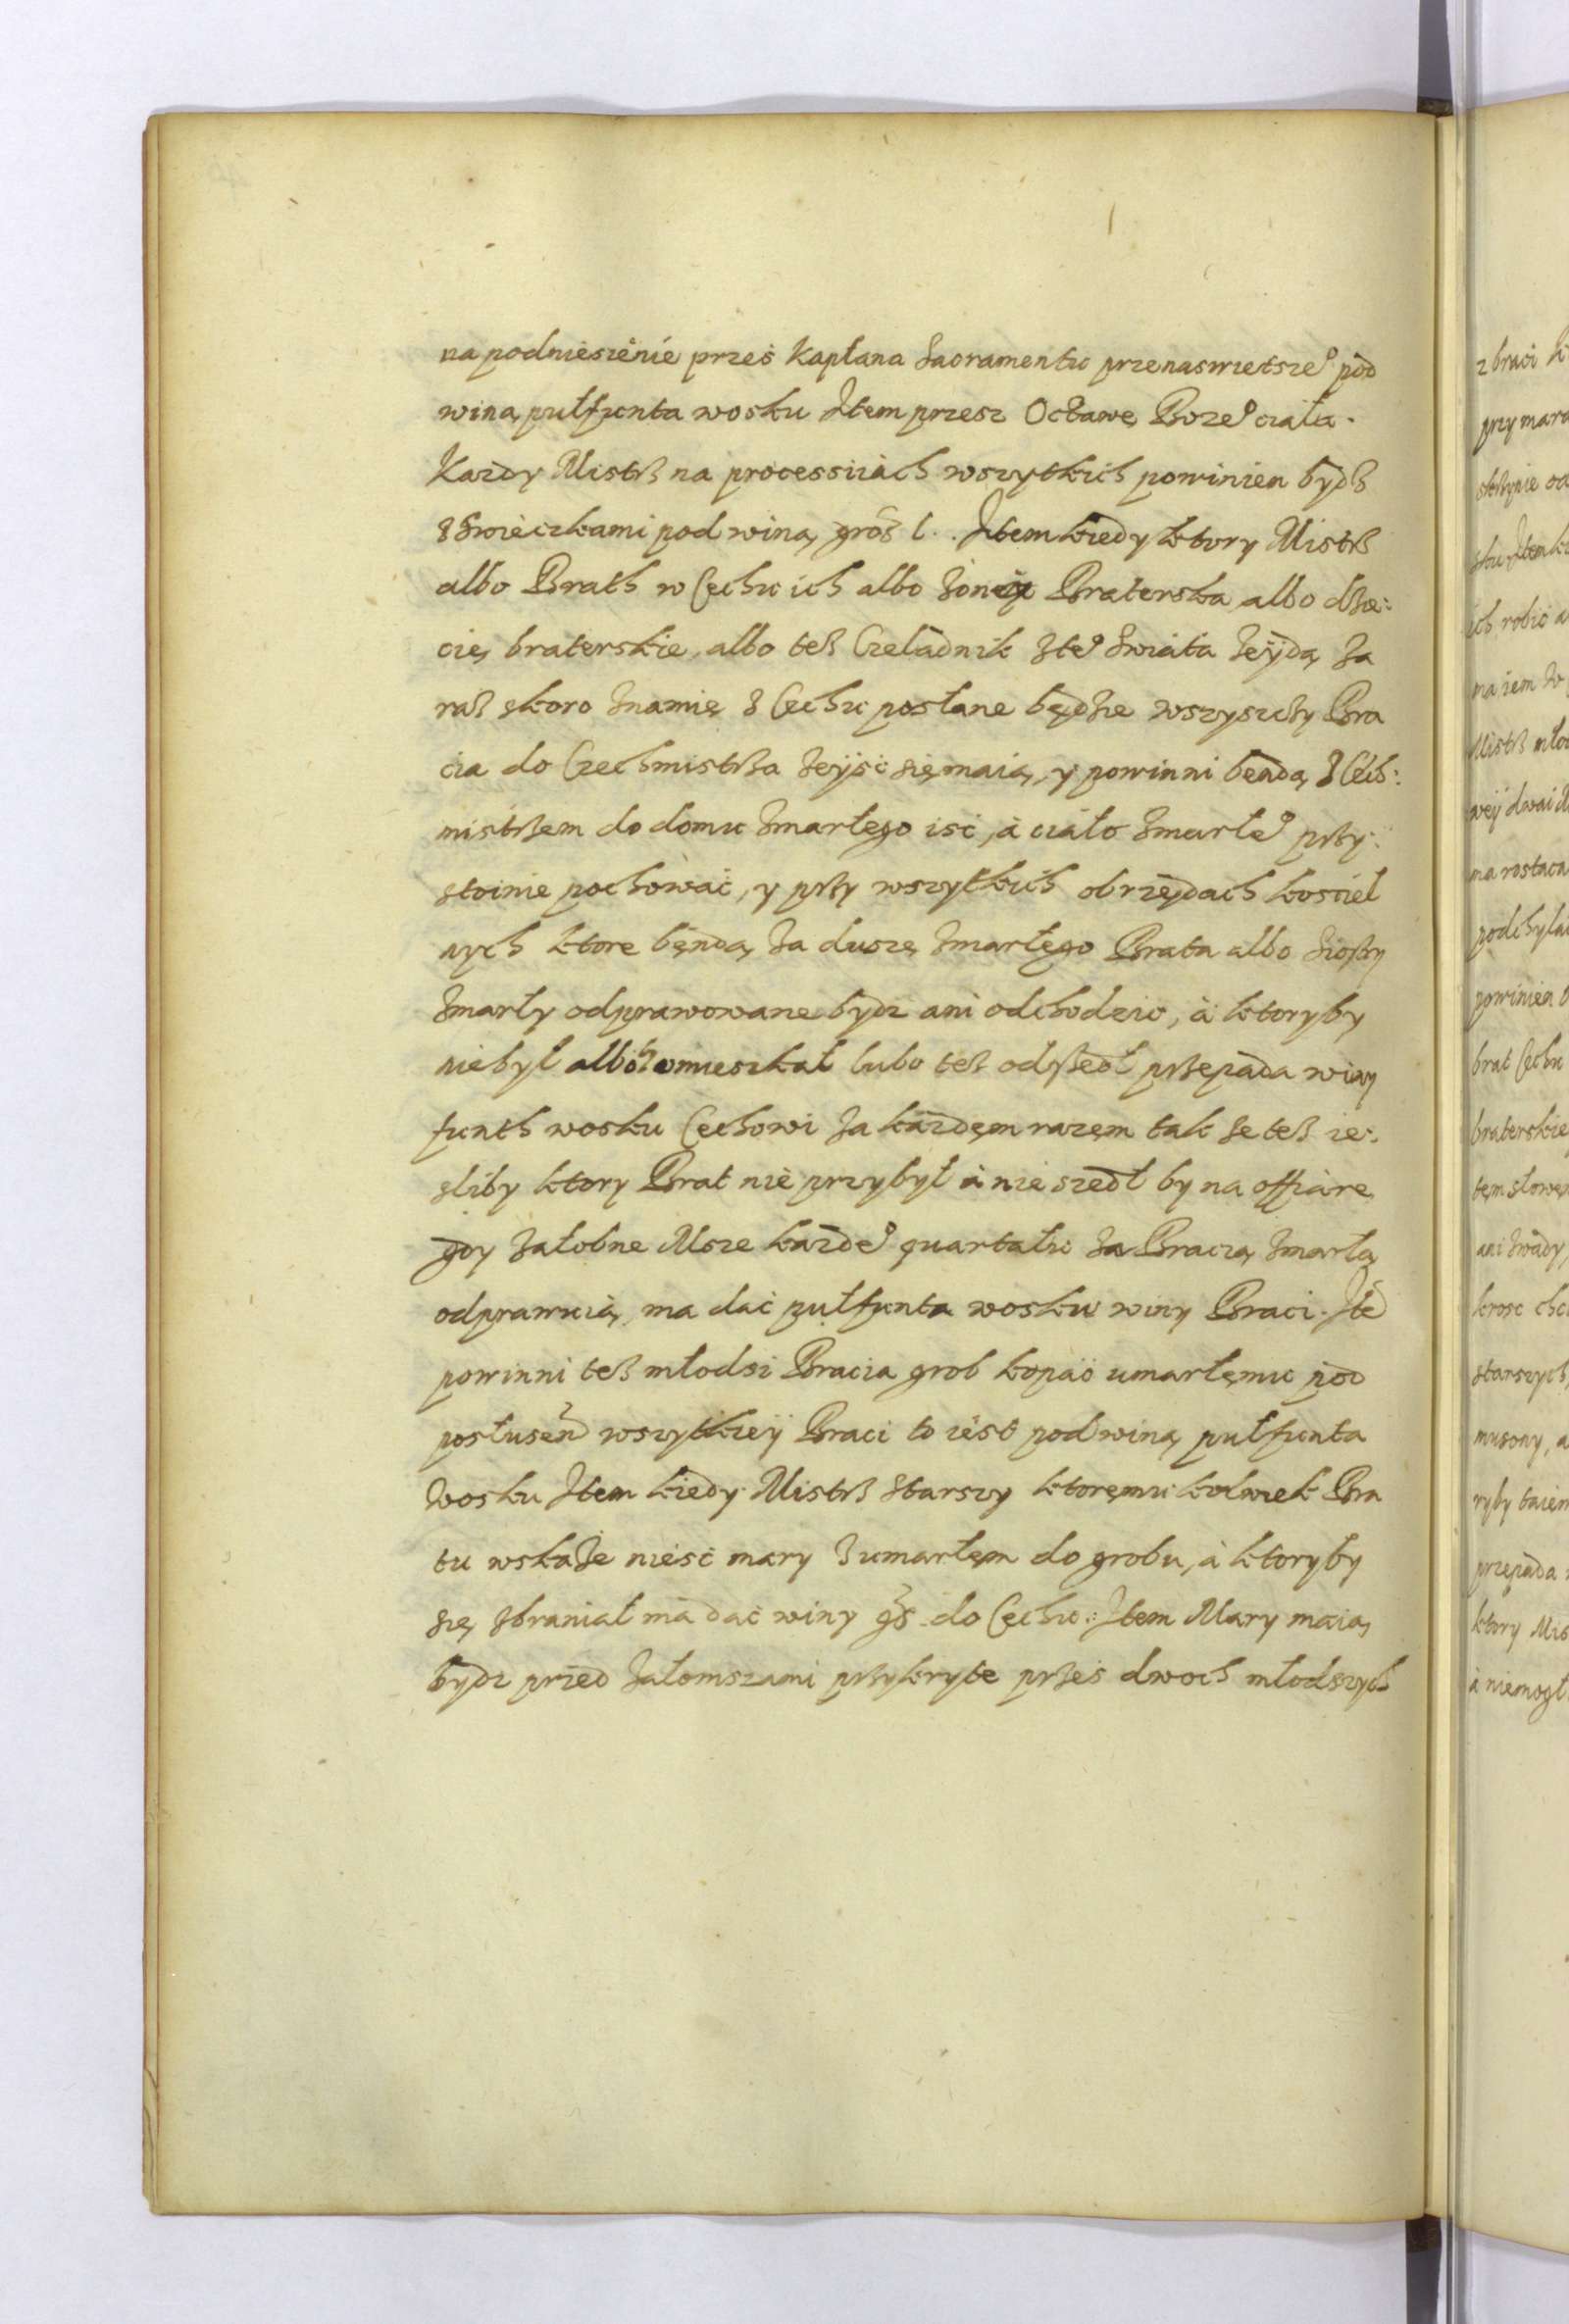 na podniesienie przes Kapłana Sacramentu przenaswietsze° pod
winą pułfunta wosku Item przesz Octawę Boze° ciała.
Kazdy Mistrz na processiiach wszytkich powinien bydz
z Swieczkami pod winą gros 1. Item kiedy ktory Mistrz
albo Brath w Cechu ich albo zona Braterska albo dzie:
cię braterskie albo tesz Czeladnik z te° Swiata zeydą za
raz skoro znamię z Cechu posłane będzie wszyscy Bra
cia do Czechmistrza zeyść się maią, y powinni bendą z Cech:
mistrzem do domu zmarłego isć, à ciało zmarłe° przy:
stoinie pochować, y przy wszytkich obrzędach kosciel
nych ktore bęndą za duszę zmarłego Brata albo Siostry
zmarły odprawowane bydz ani odchodzic, à ktoryby
niebył albo omieszkał lubo tesz odszedł przepada winy
funth wosku Cechowi za kazdęm razęm tak ze tesz ie:
sliby ktory Brat nie przybył à nie szedł by na offiarę
gdy załobne Msze kazde° quartału za Bracią zmarłą
odprawuią, ma dać pułfunta wosku winy Braci. Ite
powinni tesz młodsi Bracia grob kopać umarłęmu pod
posłusen wszytkiey Braci to iest pod winą pułfunta
Wosku Item kiedy Mistrz starszy ktoręmu kolwiek Bra
tu wskaze nieść mary z umarłęm do grobu, à ktoryby
się zbraniał ma dać winy gs do Cechu: Item Mary maią
bydz przed załomszami przykryte przes dwoch młodszych
z braci
przy mara
ich robić a
Mistrz młod
podchyla
powinien
brat Cechu
braterskie
tęm słowęm
ani zwady,
starszych
musony, a
ryby taiem
przepada
ktory Mis
à niemogł